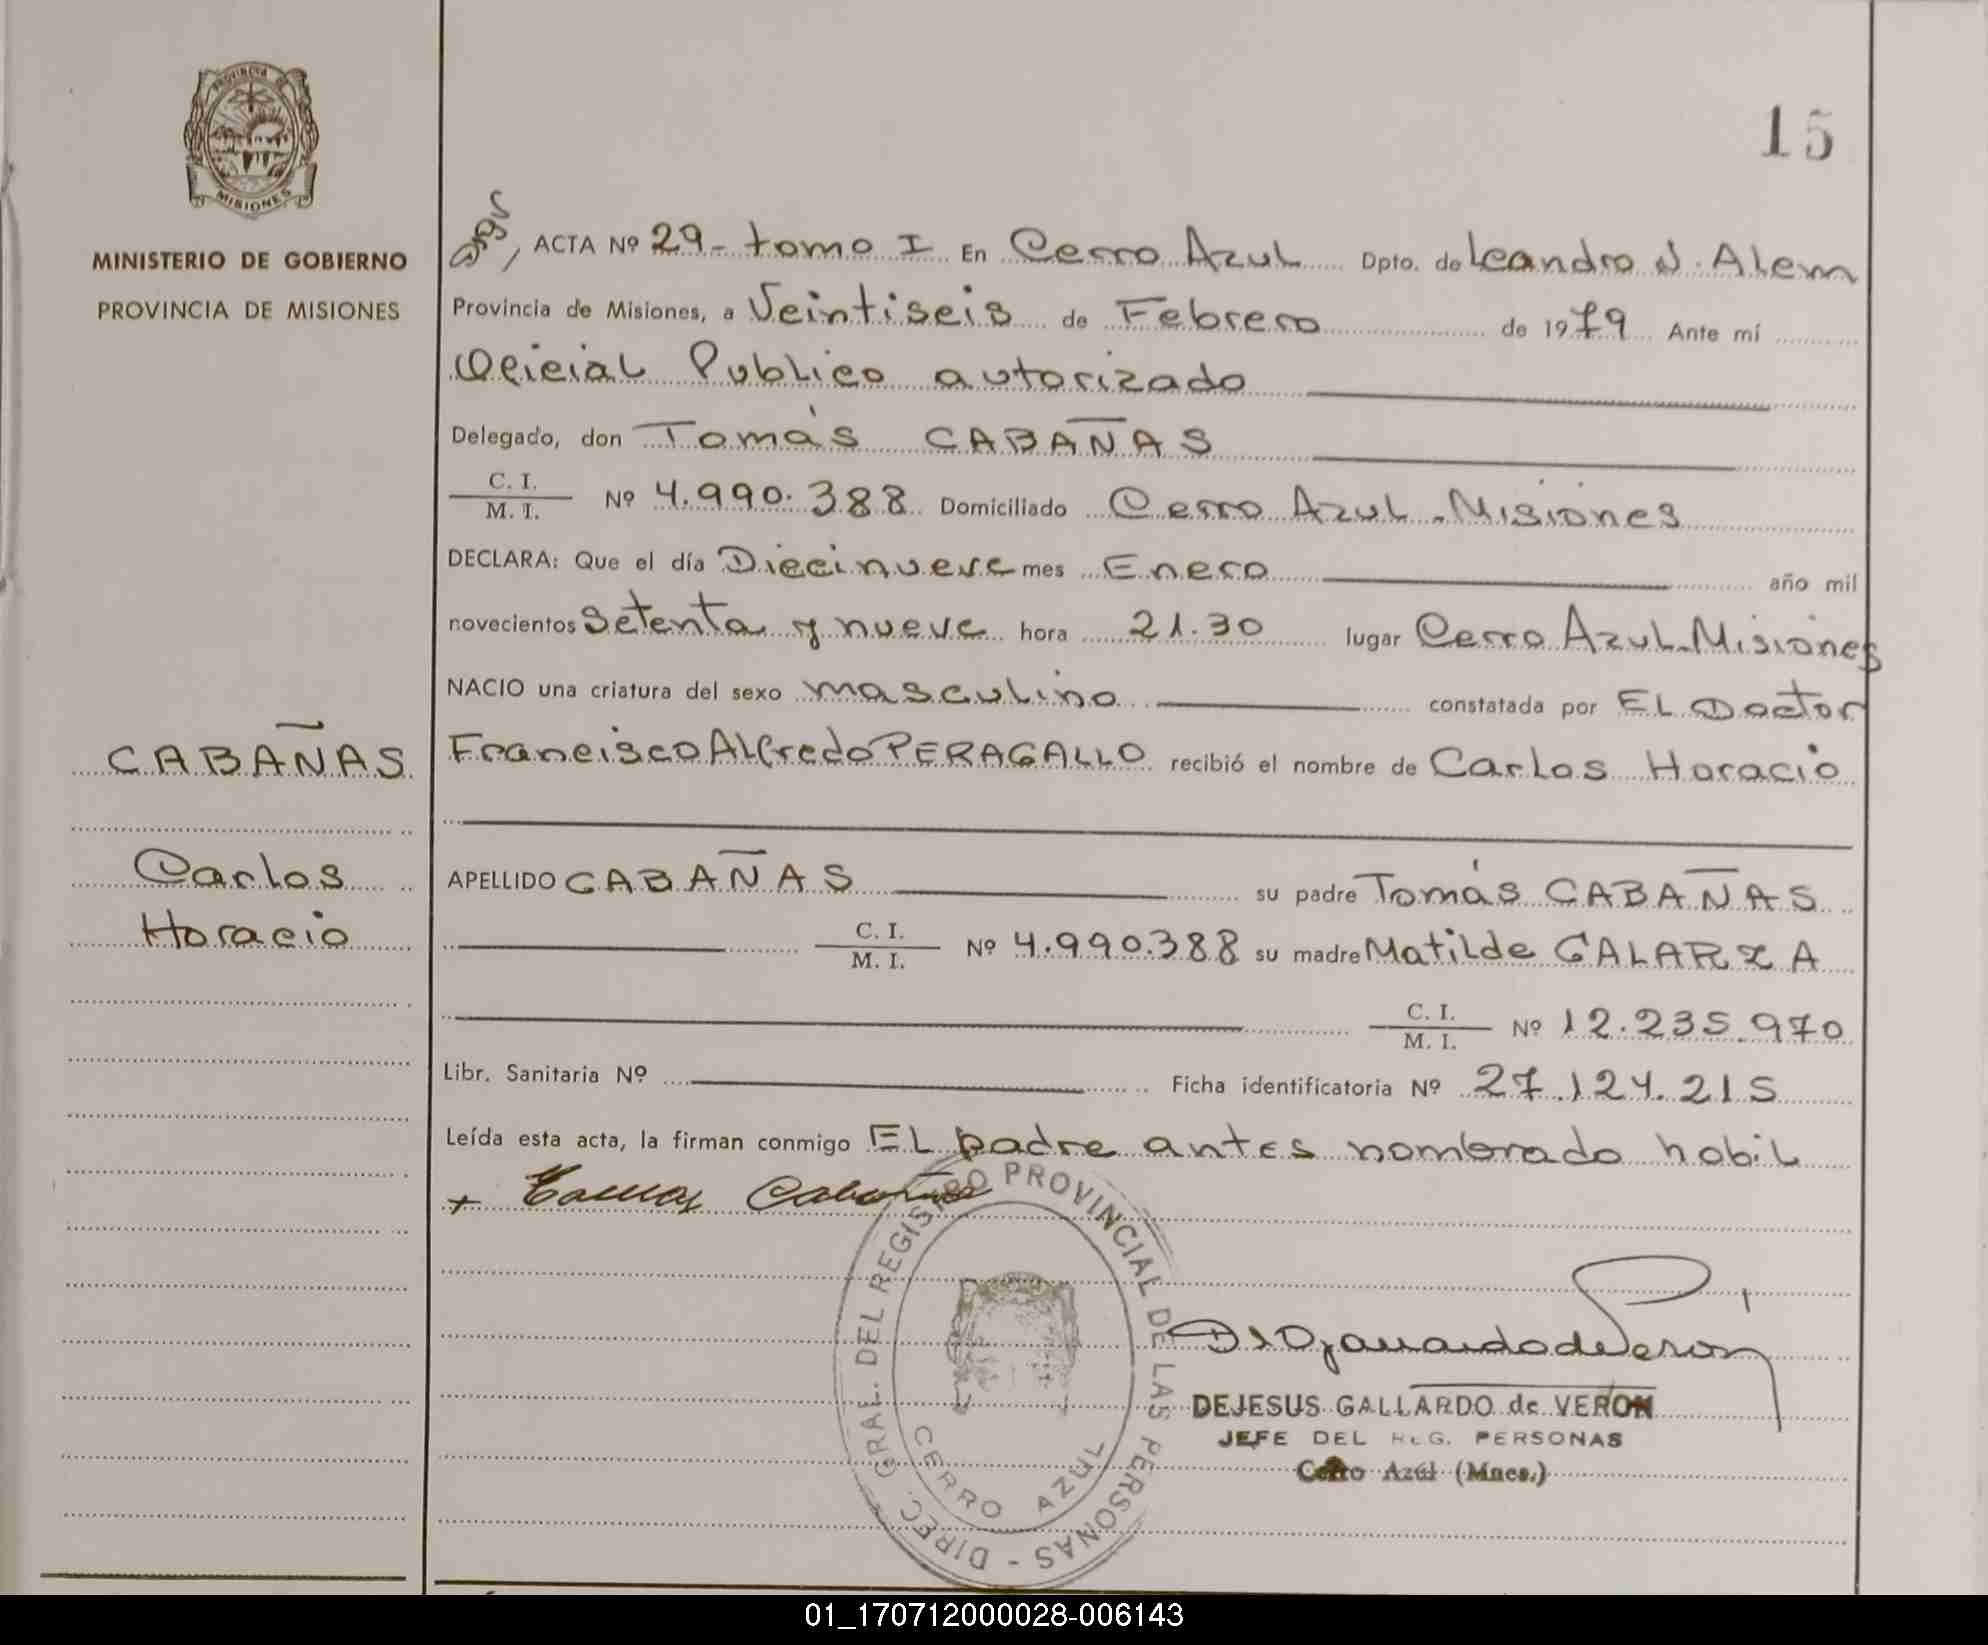 PROVINCIA DE
MISIONES
MINISTERIO DE GOBIERNO
PROVINCIA DE MISIONES
15
ACTA Nº 29 - tomo I En Cerro Azul Dpto. de Leandro N. Alem
Provincia de Misiones, a Veintiseis de Febrero de 1979 Ante mí
Oficial Publico autorizado
Delegado, don Tomás CABAÑAS
C. I.
M. I. Nº 4.990.388 Domiciliado Cerro Azul - Misiones
DECLARA: Que el día Diecinueve mes Enero año mil
novecientos Setenta y nueve hora 21.30 lugar Cerro Azul - Misiones
NACIO una criatura del sexo masculino constatada por EL Doctor
Francisco Alfredo PERAGALLO recibió el nombre de Carlos Horacio
CABAÑAS
Carlos
Horacio
APELLIDO CABAÑAS su padre Tomás CABAÑAS
C. I.
M. I. Nº 4.990.388 su madre Matilde GALARZA
C. I.
M. I. Nº 12.235.970
Libr. Sanitaria Nº Ficha identificatoria Nº 27.124.215
Leída esta acta, la firman conmigo EL padre antes nombrado habil
+ Tomas Cabañas
DIREC. GRAL. DEL REGISTRO PROVINCIAL DE LAS PERSONAS -
CERRO AZUL
DEJESUS GALLARDO de VERON
JEFE DEL REG. PERSONAS
Cerro Azúl (Mnes.)
01_170712000028-006143